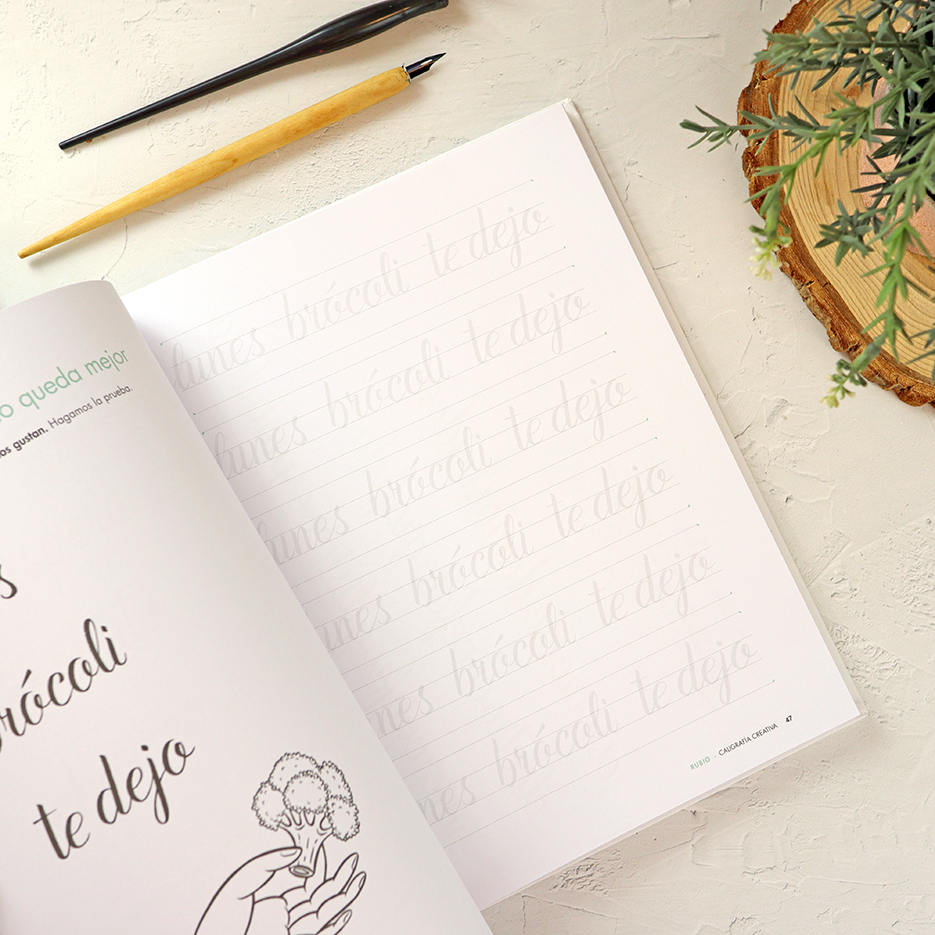 o queda mejor
os gustan. Hagamos la prueba.
s
rócoli
te dejo
lunes brócoli te dejo
lunes brócoli te dejo
unes brócoli te dejo
unes brócoli te dejo
nes brócoli te dejo
nes brócoli te dejo
RUBIO · CALIGRAFÍA CREATIVA 47